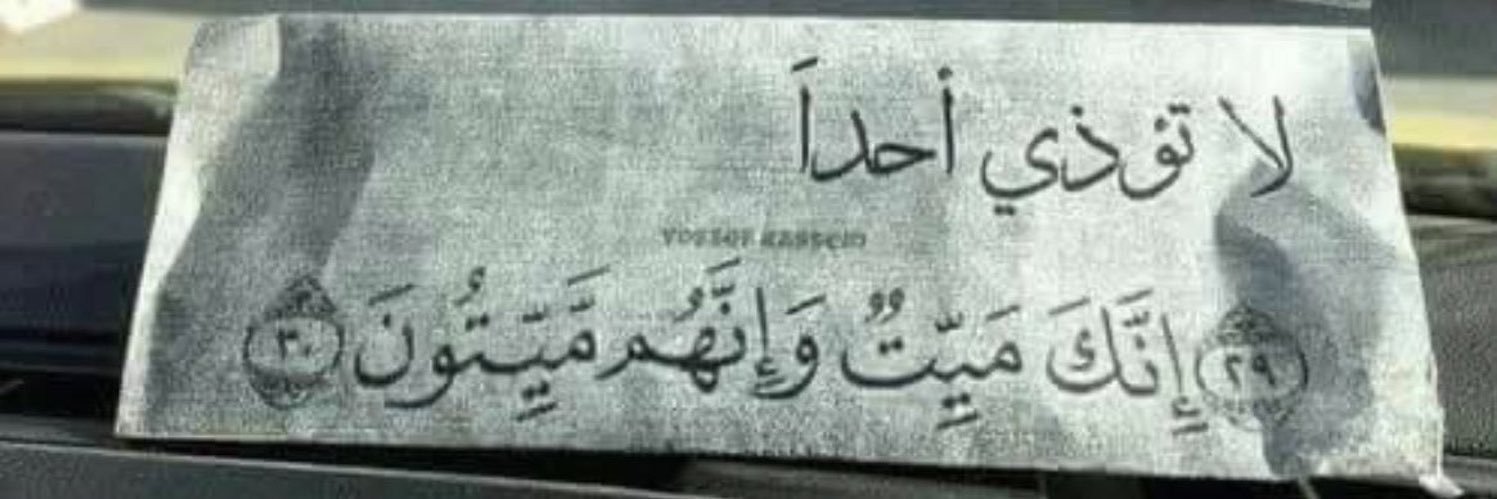 لا تؤذي أحداَ
yossef kassem
٢٩ إِنَّكَ مَيِّتٌ وَإِنَّهُم مَّيِّتُونَ ٣٠